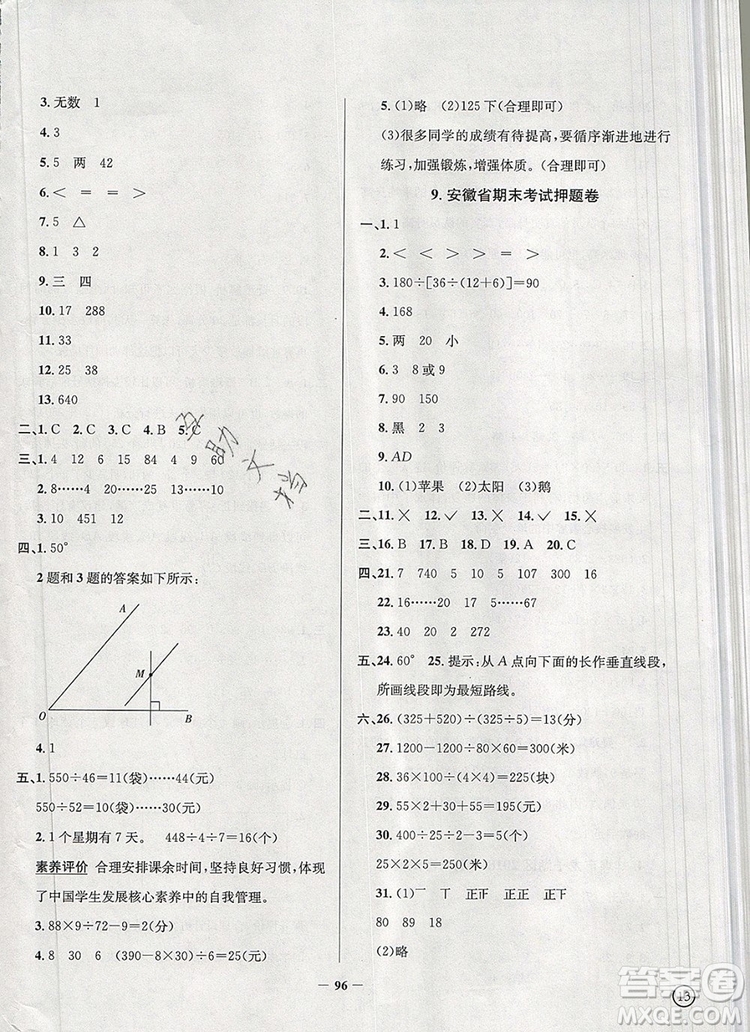 3. 无数 1
4. 3
5. 5 两 42
6. < = = > = <
7. 5 △
8. 1 3 2
9. 三 四
10. 17 288
11. 33
12. 25 38
13. 640
二、1. C 2. C 3. C 4. B 5. C
三、1. 4 12 6 15 84 4 9 60
2. 8……4 20……17 13……10
3. 10 451 12
四、1. 50°
2题和3题的答案如下所示:
A
M
O B
4. 1
五、1. 550÷46=11(袋)……44(元)
550÷52=10(袋)……30(元)
2. 1个星期有7天。 448÷4÷7=16(个)
素养评价 合理安排课余时间,坚持良好习惯,体现
了中国学生发展核心素养中的自我管理。
3. 88×9÷72-9=2(分)
4. 8 30 6 (390-8×30)÷6=25(元)
5. (1)略 (2)125下(合理即可)
(3)很多同学的成绩有待提高,要循序渐进地进行
练习,加强锻炼,增强体质。(合理即可)
9. 安徽省期末考试押题卷
一、1. 1
2. < < > > < =
3. 180÷[36÷(12+6)]=90
4. 168
5. 两 20 小
6. 3 8或9
7. 90 150
8. 黑 2
9. AD
10. (1)苹果 (2)太阳 (3)鹅
二、11. × 12. ✓ 13. × 14. ✓ 15. ×
三、16. B 17. C 18. A 19. B 20. C
四、21. 7 740 5 10 107 300 16
22. 16……20 15……5 57……6
23. 40 2 270 4
五、24. 60° 25. 提示:从A点向下面的长作垂直线段,
所画线段即为最短路线。
六、26. (325+520)÷(325÷5)=13(分)
27. 1200-1200÷80×60=300(米)
28. 36×100÷4÷4=225(块)
29. 55×2+30=55×4-80
55×2+30=140(元)
30. 50×2÷4=25(米)
25×10=250(米)
31. (1)一 丅 丅 正正 正正
80 89 18
(2)略
96
答案圈
MXQE.COM
13